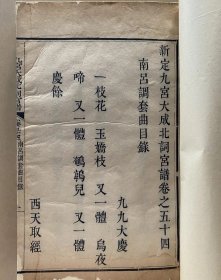 新定九宮大成北詞宮譜卷之五十四
南呂調套曲目錄
九九大慶
一枝花 玉嬌枝 又一體 烏夜
啼 又一體 鵪鶉兒 又一體
慶餘
西天取經